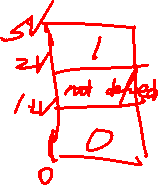 5V
1
2V
not defined
1V
0
0